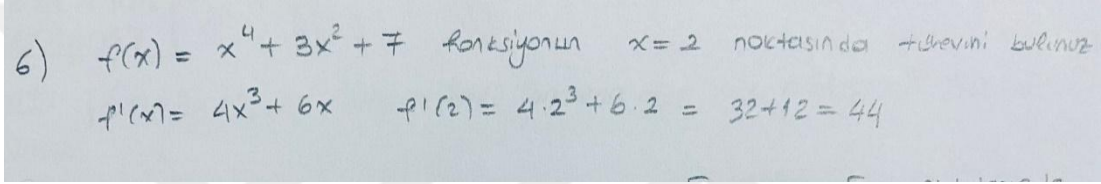 6) f(x) = x⁴ + 3x² + 7 fonksiyonun x = 2 noktasında türevini bulunuz
f'(x) = 4x³ + 6x f'(2) = 4·2³ + 6·2 = 32+12 = 44